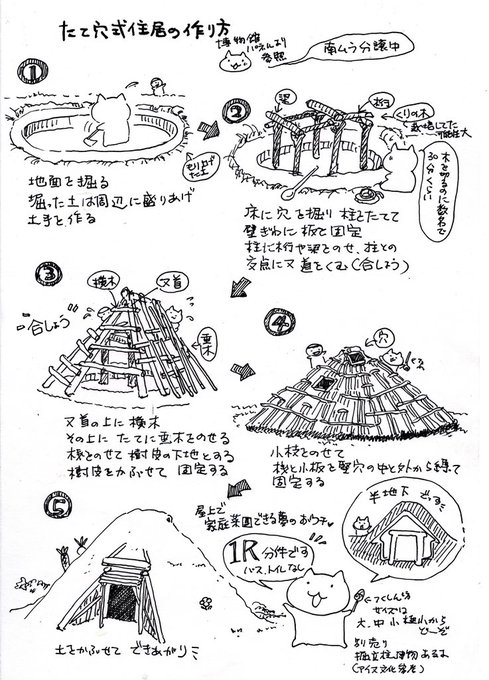 たて穴式住居の作り方
博物館
ぱねんより
参照
南ムラ分譲中
①
盛り上げ
た土
地面を掘る
掘った土は周辺に盛りあげ
土手を作る
②
梁
桁
くりの木
栽培してた
可能性大
木を切るのに数名で
30分くらい
床に穴を掘り柱をたてて
壁ぎわに板を固定
柱に桁や梁をのせ、柱との
交点に又首をくむ(合しょう)
③
棟木
又首
垂木
合しょう
又首の上に棟木
その上にたてに垂木をのせる
桟をのせて樹皮の下地とする
樹皮をかぶせて固定する
④
穴
小枝をのせて
桟と小板を竪穴の中と外から縛って
固定する
⑤
土をかぶせてできあがり
屋上で
家庭菜園できる夢のおウチ♥
1R
分件です
バス、トイレなし
半地下でっす
←つくしんぼ
サイズは
大、中、小、極小から
どーぞ
別売り
掘立柱建物あるよ
(アイヌ文化等屋)